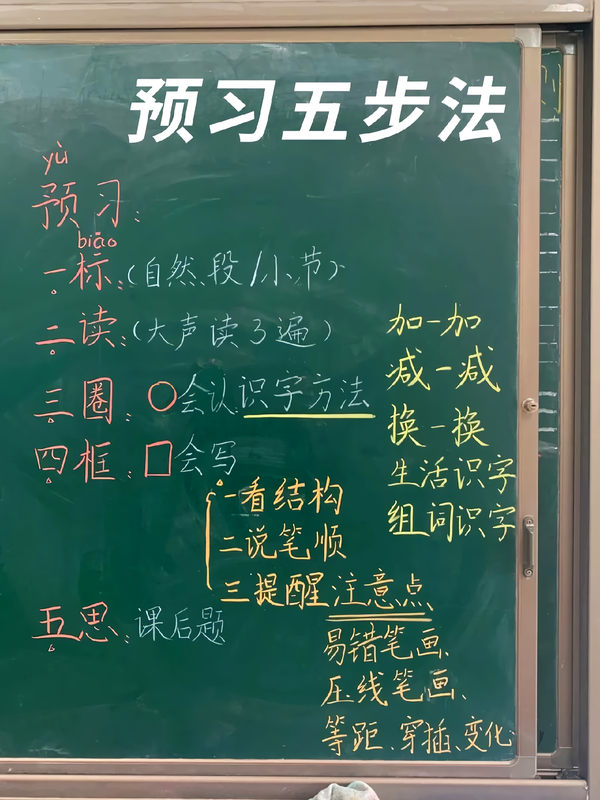 预习五步法
yù
预习:
biāo
一标:(自然段/小节)
二读:(大声读3遍)
三圈:○会认识字方法
四框:□会写
一看结构
二说笔顺
三提醒注意点
易错笔画、
压线笔画、
等距、穿插、变化
五思:课后题
加一加
减一减
换一换
生活识字
组词识字